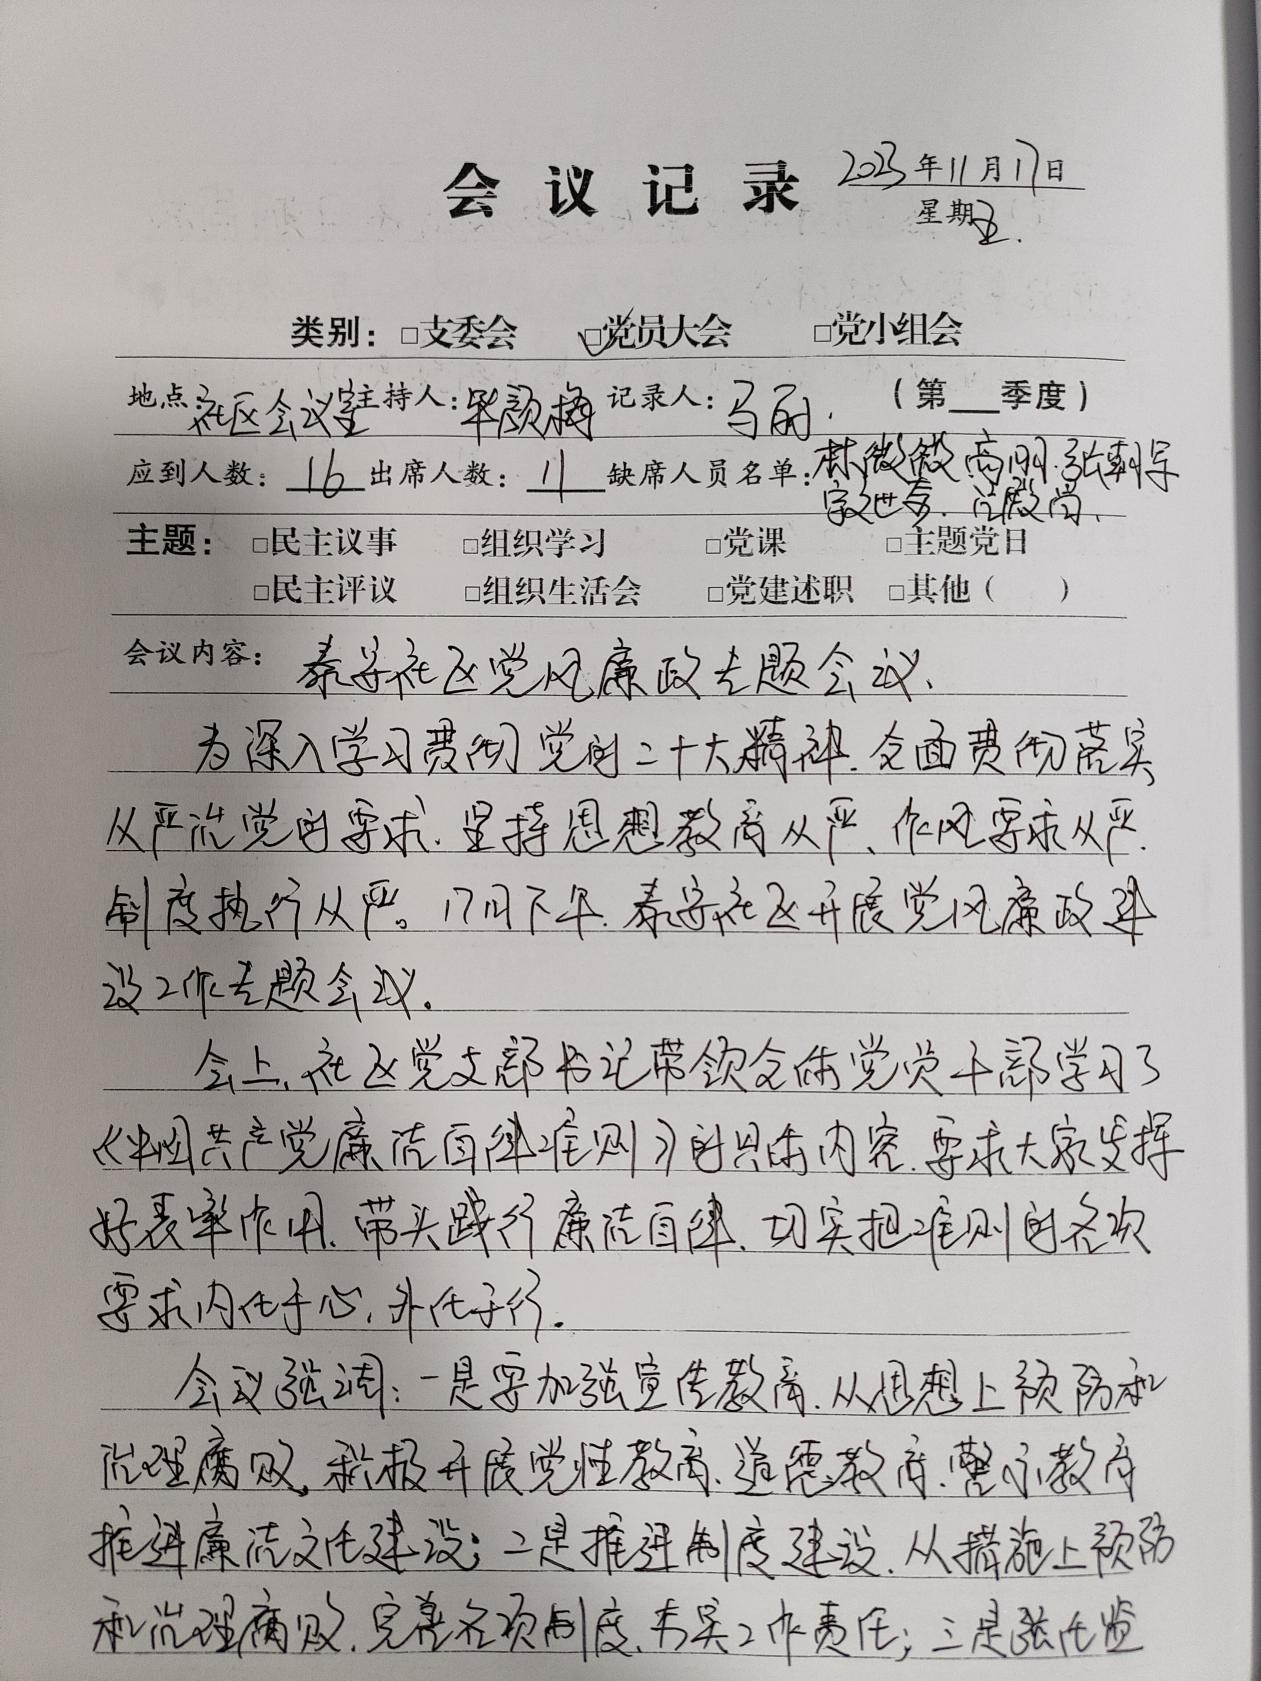 会议记录 2023年11月17日
星期五.
类别: □支委会 ☑党员大会 □党小组会
地点:社区会议室 主持人: 记录人:马丽. (第 季度)
应到人数: 16 出席人数: 11 缺席人员名单:林微微 高明.张
主题: □民主议事 □组织学习 □党课 □主题党日
□民主评议 □组织生活会 □党建述职 □其他( )
会议内容: 泰安社区党风廉政专题会议、
为深入学习贯彻党的二十大精神.全面贯彻落实
从严治党的要求.坚持思想教育从严、作风要求从严.
制度执行从严。17日下午.泰安社区开展党风廉政建
设工作专题会议.
会上、社区党支部书记带领全体党员干部学习了
《中国共产党廉洁自律准则》的具体内容.要求大家发挥
好表率作用.带头践行廉洁自律、切实把准则的各项
要求内化于心,外化于行.
会议强调:一是要加强宣传教育.从思想上预防和
治理腐败,积极开展党性教育、道德教育、警示教育
推进廉洁文化建设;二是推进制度建设.从措施上预防
和治理腐败.完善各项制度、夯实工作责任;三是强化监